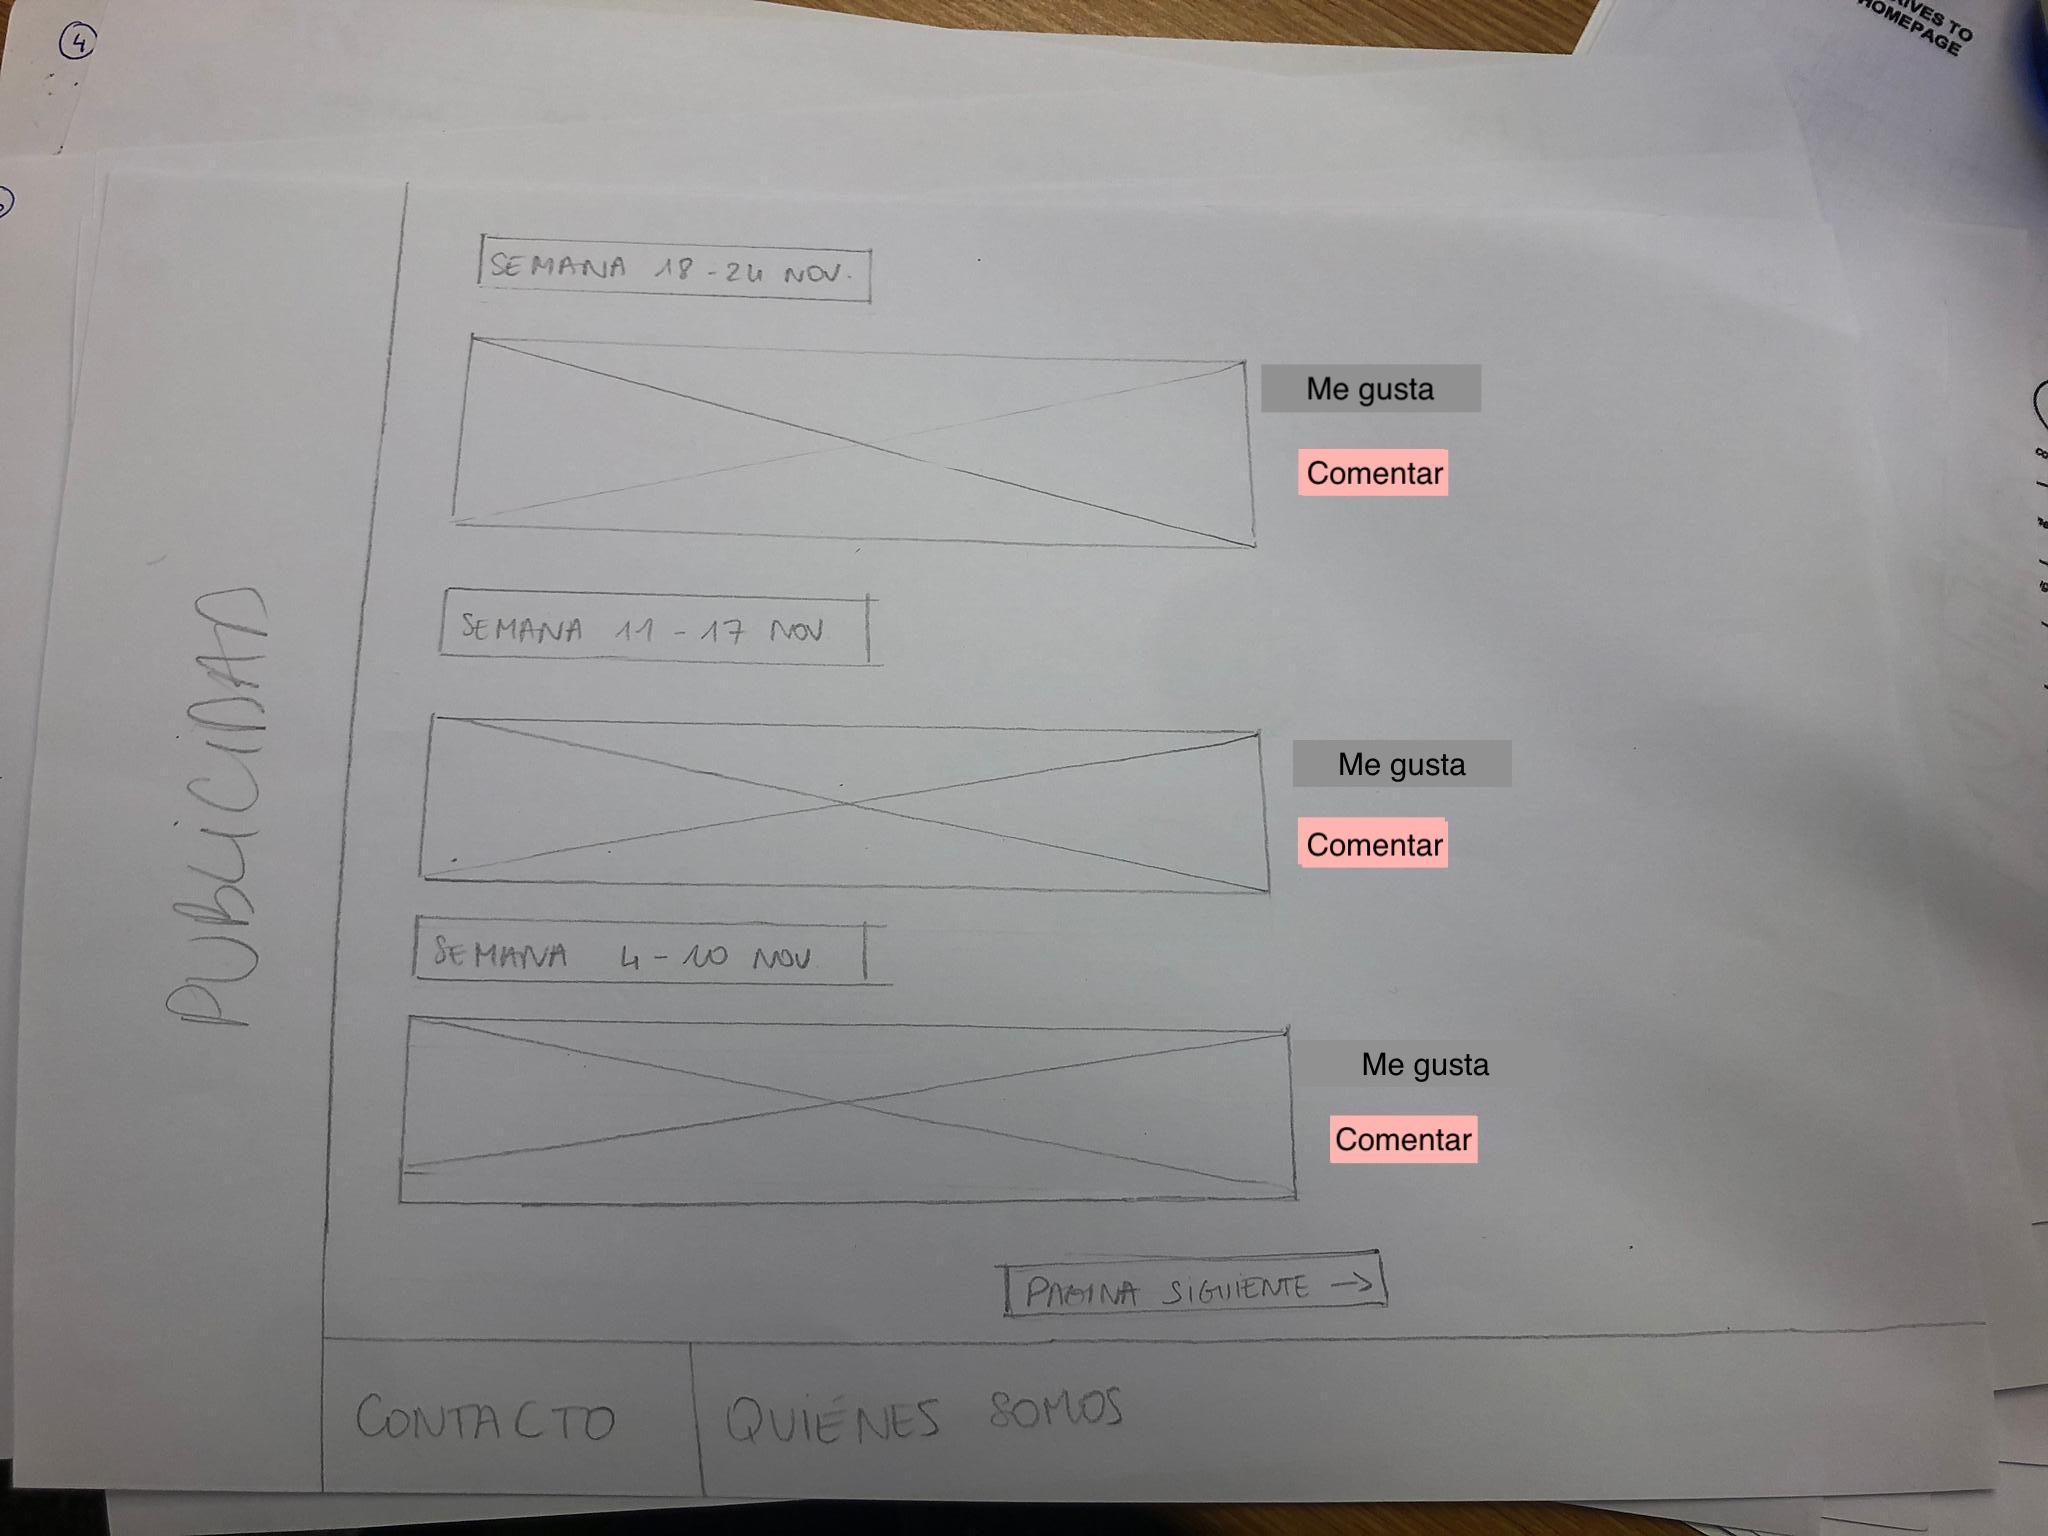 4
RIVES TO
HOMEPAGE
SEMANA 18-24 NOV.
Me gusta
Comentar
SEMANA 11-17 NOV
Me gusta
Comentar
SEMANA 4-10 NOV
Me gusta
Comentar
PUBLICIDAD
PAGINA SIGUIENTE →
CONTACTO
QUIÉNES SOMOS